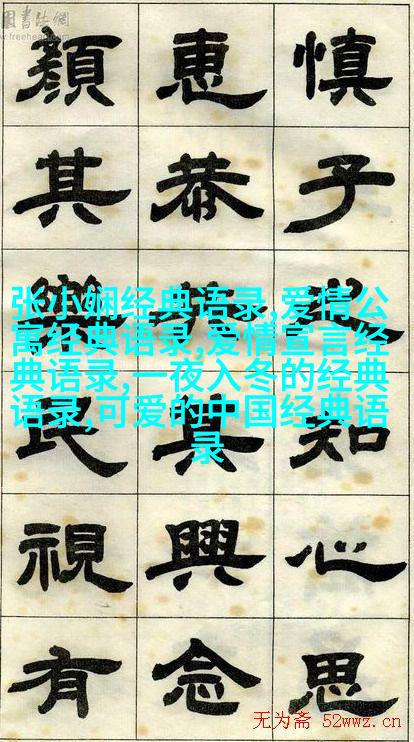 国書法網
慎子知心思
惠恭其興念
顏其樂民視有
张小娴经典语录,爱情公
寓经典语录,爱情宣言经
典语录,一夜入冬的经典
语录,可爱的中国经典语
录
无为斋 52wwz.cn